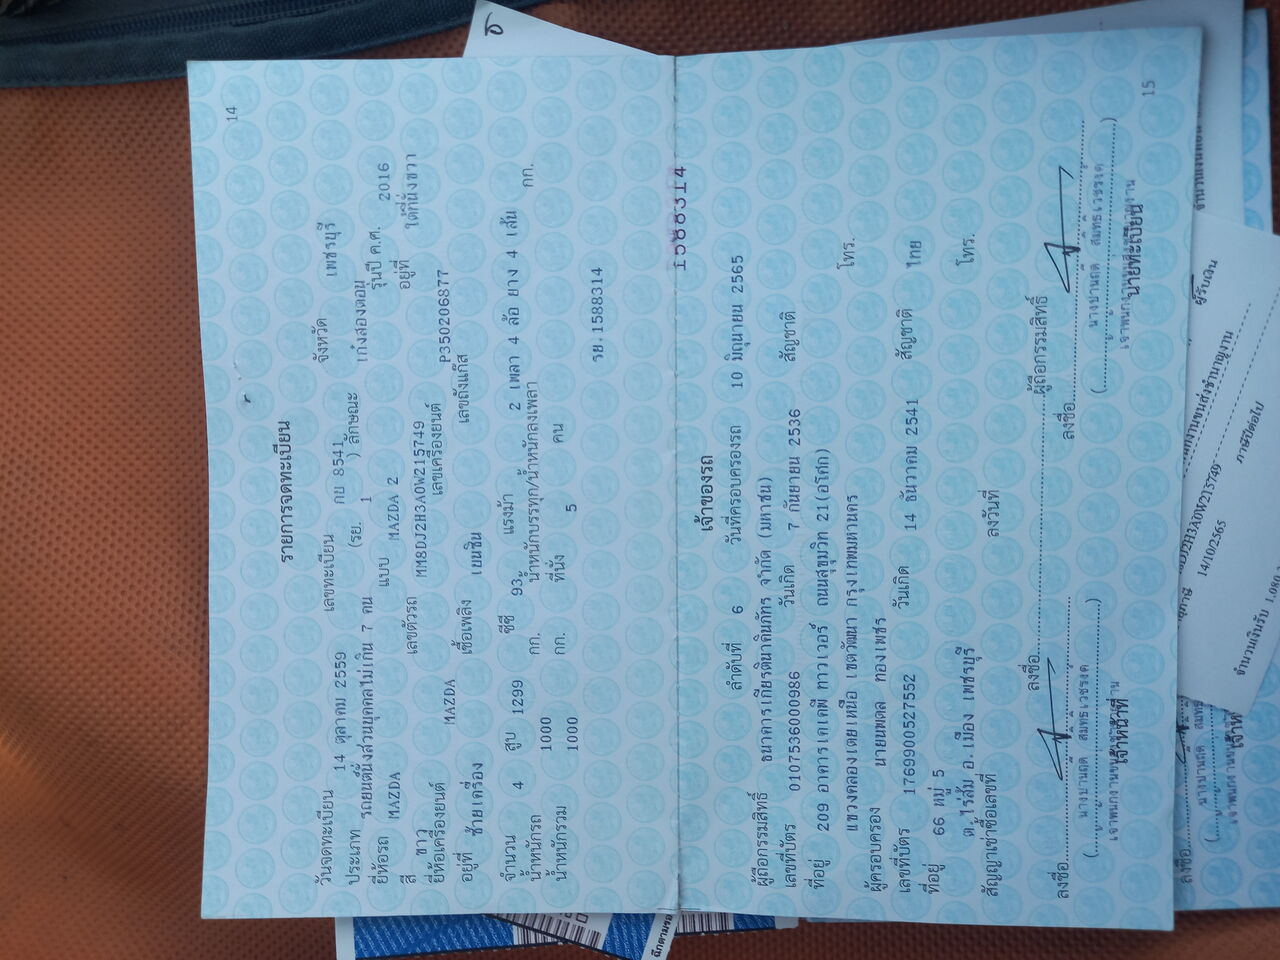 14
รายการจดทะเบียน
วันจดทะเบียน 14 ตุลาคม 2559 เลขทะเบียน กย 8541 จังหวัด เพชรบุรี
ประเภท รถยนต์นั่งส่วนบุคคลไม่เกิน 7 คน (รย. 1 ) ลักษณะ เก๋งสองตอน
ยี่ห้อรถ MAZDA แบบ MAZDA 2 รุ่นปี ค.ศ. 2016
สี ขาว เลขตัวรถ MM8DJ2H3A0W215749 อยู่ที่ ใต้ที่นั่งขวา
ยี่ห้อเครื่องยนต์ MAZDA เลขเครื่องยนต์ P350206877
อยู่ที่ ซ้ายเครื่อง เชื้อเพลิง เบนซิน เลขถังแก๊ส
จำนวน 4 สูบ 1299 ซีซี 93 แรงม้า 2 เพลา 4 ล้อ ยาง 4 เส้น
น้ำหนักรถ 1000 กก. น้ำหนักบรรทุก/น้ำหนักลงเพลา กก.
น้ำหนักรวม 1000 กก. ที่นั่ง 5 คน
รย.1588314
1588314
เจ้าของรถ
ลำดับที่ 6 วันที่ครอบครองรถ 10 มิถุนายน 2565
ผู้ถือกรรมสิทธิ์ ธนาคารเกียรตินาคินภัทร จำกัด (มหาชน)
เลขที่บัตร 0107536000986 วันเกิด 7 กันยายน 2536 สัญชาติ
ที่อยู่ 209 อาคารเคเคพี ทาวเวอร์ ถนนสุขุมวิท 21(อโศก)
แขวงคลองเตยเหนือ เขตวัฒนา กรุงเทพมหานคร โทร.
ผู้ครอบครอง นายนพดล ทองเพชร
เลขที่บัตร 1769900527552 วันเกิด 14 ธันวาคม 2541 สัญชาติ ไทย
ที่อยู่ 66 หมู่ 5
ต.ไร่ส้ม อ.เมือง เพชรบุรี โทร.
สัญญาเช่าซื้อเลขที่ ลงวันที่
ลงชื่อ ผู้ถือกรรมสิทธิ์
ลงชื่อ ลงชื่อ
เจ้าหน้าที่ นายทะเบียน
15
ผู้รับเงิน
14/10/2565
ภาษีปีต่อไป
จำนวนเงินรับ